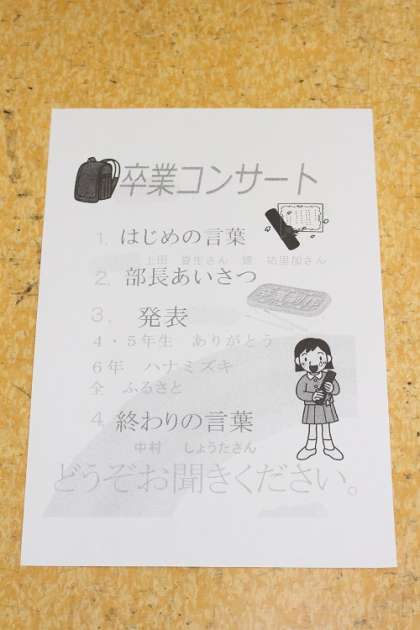 卒業コンサート
1. はじめの言葉
上田 夏生さん 堤 祐里加さん
2. 部長あいさつ
3. 発表
4・5年生 ありがとう
6年 ハナミズキ
全 ふるさと
4 終わりの言葉
中村 しょうたさん
どうぞお聞きください。